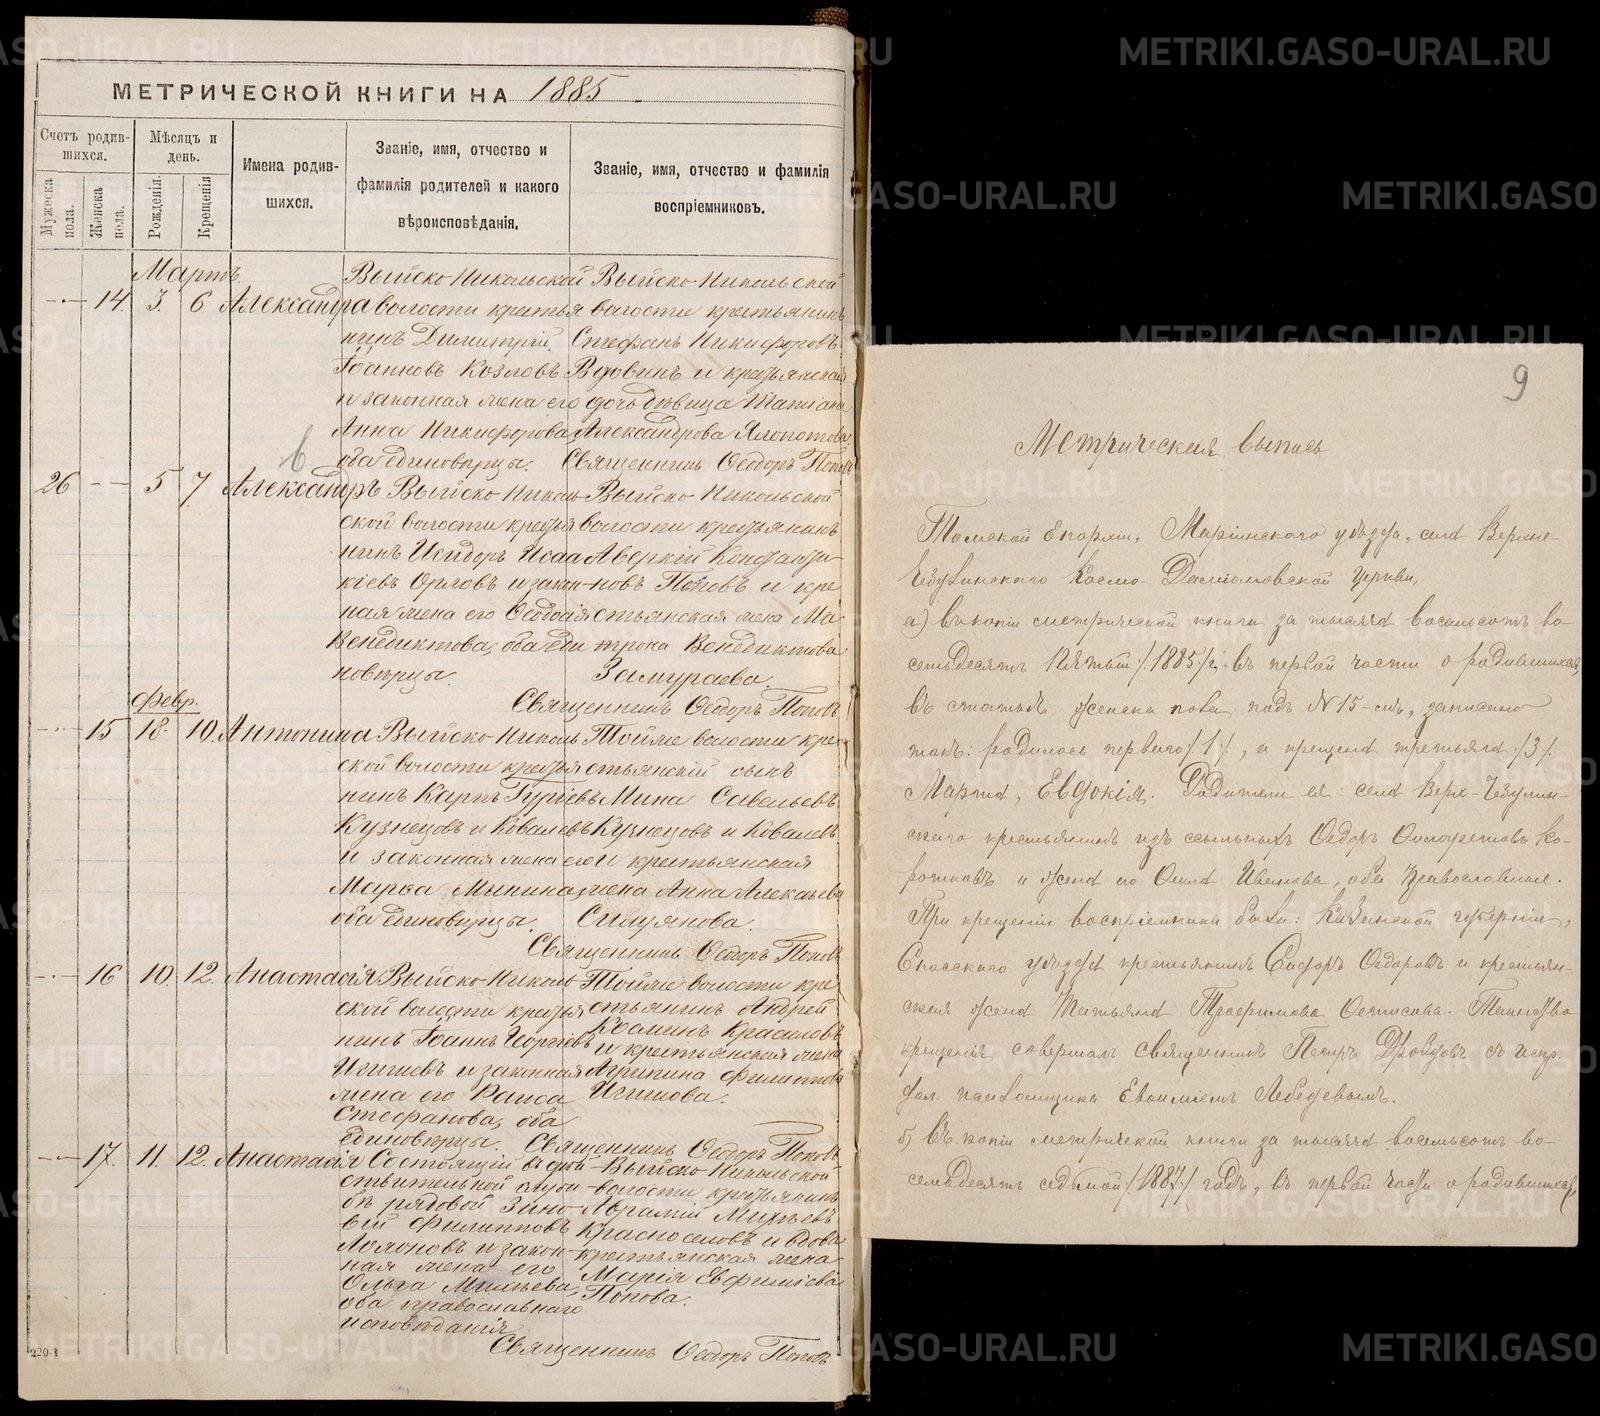 МЕТРИЧЕСКОЙ КНИГИ НА 1885
Счетъ родив-
шихся.
Мѣсяцъ и
день.
Имена родив-
шихся.
Званіе, имя, отчество и
фамилія родителей и какого
вѣроисповѣданія.
Званіе, имя, отчество и фамилія
воспріемниковъ.
Мужеска
пола.
Женска
пола.
Рожденія.
Крещенія
Мартъ
14. 3. 6 Александра
Выйско-Никольской
волости крестья
нинъ Димитрій
Іоанновъ Козловъ
и законная жена его
Анна Никифорова,
оба единовѣрцы.
Выйско-Никольской
волости крестьянинъ
Стефанъ Никифоровъ
Вдовинъ и крестьянская
дочь дѣвица Татіана
Александрова
Священникъ Ѳеодоръ Поповъ
26 5 7. Александръ
Выйско-Николь
ской волости крестья
нинъ Исидоръ Исаа
кіевъ Орловъ и закон-
ная жена его Ѳеодосія
Венедиктова, оба еди
новѣрцы.
Выйско-Никольской
волости крестьянинъ
Аверкій Константи-
новъ Поповъ и кре
стьянская жена Ма
трона Венедиктова
Замураева.
Священникъ Ѳеодоръ Поповъ
Февр.
15 18. 10. Антонина
Выйско-Николь
ской волости крестья
нинъ Карпъ Гуріевъ
Кузнецовъ и Ковалевъ
и законная жена его
Марѳа Минина,
оба единовѣрцы.
Тойже волости кре
стьянскій сынъ
Мина Савельевъ
Кузнецовъ и Ковалевъ
и крестьянская
жена Анна Алексѣева
Силуянова.
Священникъ Ѳеодоръ Поповъ
16 10. 12. Анастасія
Выйско-Николь
ской волости крестья
нинъ Іоаннъ Георгіевъ
Игишевъ и законная
жена его Раиса
Стефанова, оба
единовѣрцы.
Тойже волости кре
стьянинъ Андрей
Козминъ Красиловъ
и крестьянская жена
Агрипина Филиппова
Игишова.
Священникъ Ѳеодоръ Поповъ
17. 11. 12. Анастасія
Состоящій въ дѣй-
ствительной служ-
бѣ рядовой Зино-
вій Филипповъ
и закон-
ная жена его
Ольга
оба православнаго
исповѣданія
Выйско-Никольской
волости крестьянинъ
Аврамій Михѣевъ
Красноселовъ и вдова
крестьянская жена
Марія Евфиміева
Попова.
Священникъ Ѳеодоръ Поповъ
220-1
9
Метрическая выпись
Томской Епархіи, Маріинскаго уѣзда, села Верхне-
Чебулинскаго Космо-Даміановской церкви,
а) въ копіи метрической книги за тысяча восемьсотъ во-
семьдесятъ пятый /1885/ г. въ первой части о родившихся,
въ статьѣ женска пола подъ №15-мъ, записано
такъ: родилась перваго /1/, а крещена третьяго /3/
Марта, Евдокія. Родители ея: села Верх-Чебулин-
скаго крестьянинъ изъ ссыльныхъ Ѳедоръ Ко-
ротковъ и жена его Иванова, оба православные.
При крещеніи воспріемники были: Казанской губерніи,
Спасскаго уѣзда крестьянинъ Сидоръ Ѳедоровъ и крестьян-
ская жена Татьяна Трофимова Таинство
крещенія совершалъ священникъ Петръ Дроздовъ съ испр.
дол. псаломщика Евѳиміемъ Лебедевымъ.
б) Въ копіи метрической книги за тысяча восемьсотъ во-
семьдесятъ седьмой /1887/ годъ, въ первой части о родившихся,
METRIKI.GASO-URAL.RU